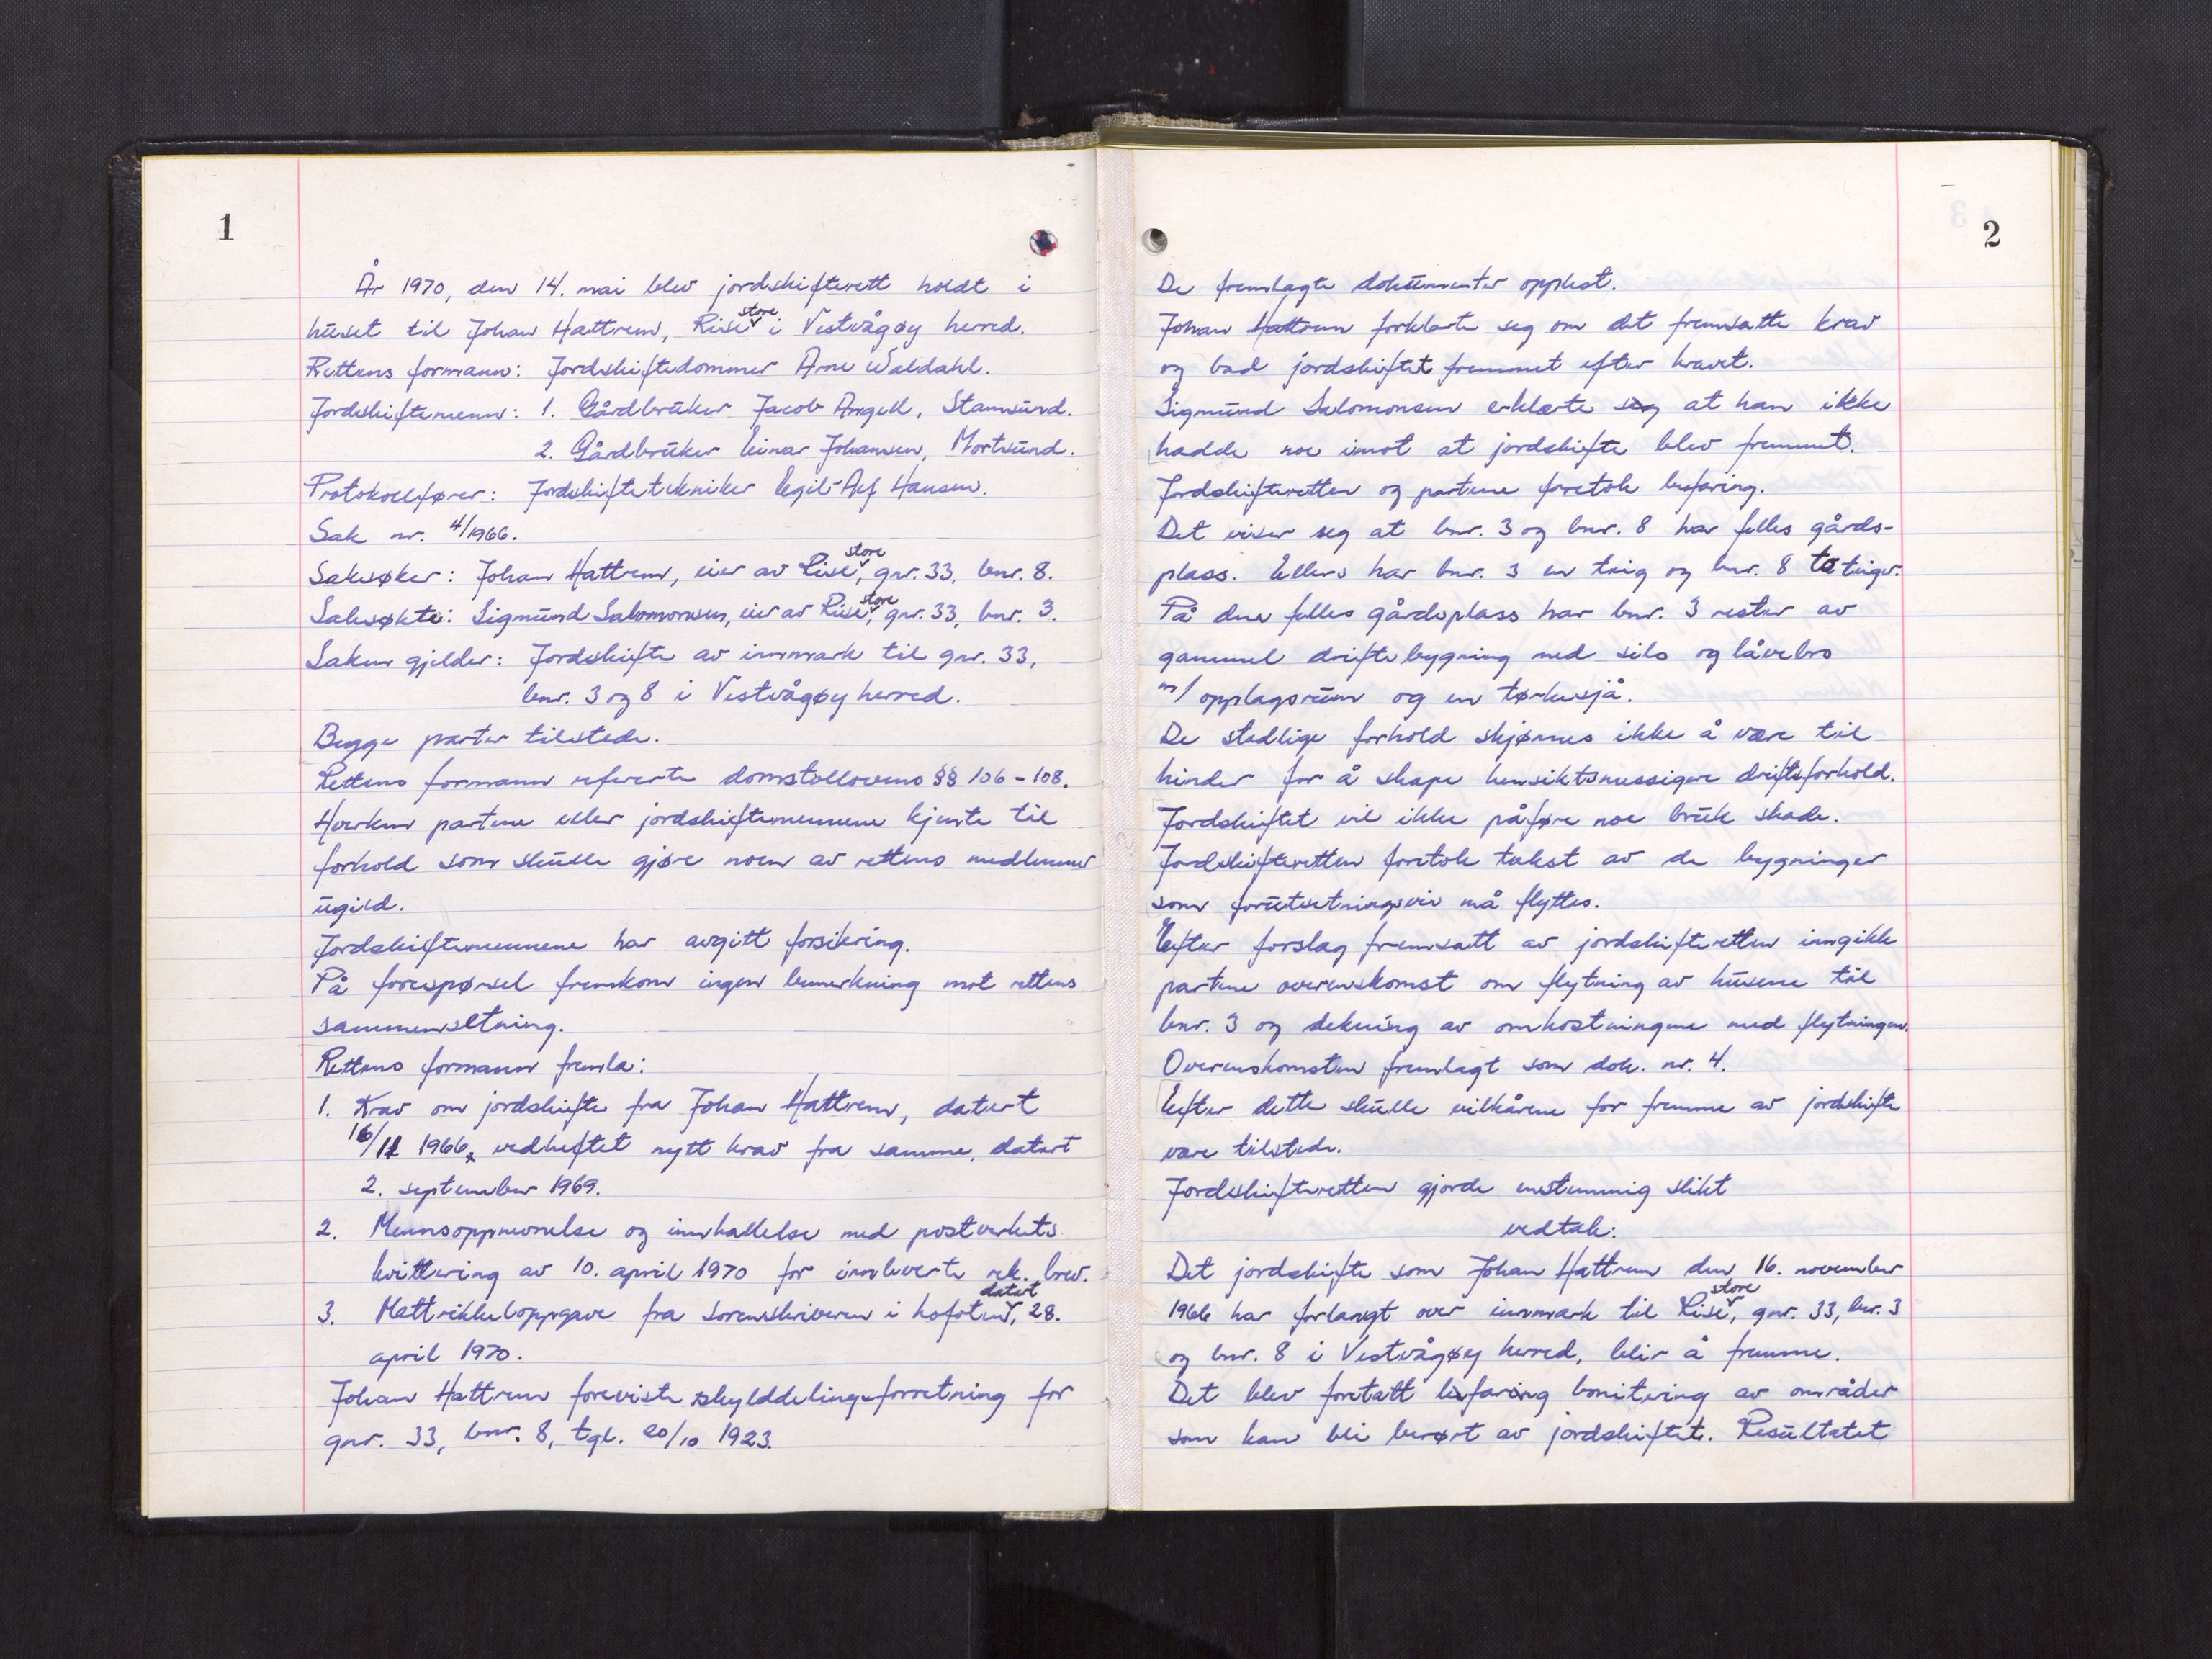 1
År 1970, den 14. mai blev jordskifterett holdt i
huset til Johan Hattrem, Rise store i Vestvågøy herred.
Rettens formann: Jordskiftedommer Arne Waldahl.
Jordskiftemenn: 1. Gårdbruker Jacob Angell, Stamsund.
2. Gårdbruker Einar Johansen, Mortsund.
Protokollfører: Jordskiftetekniker Egil-Alf Hansen.
Sak nr. 4/1966.
Saksøker: Johan Hattrem, eier av Rise store, gnr. 33, bnr. 8.
Saksøkte: Sigmund Salomonsen, eier av Rise store, gnr. 33, bnr. 3.
Saken gjelder: Jordskifte av innmark til gnr. 33,
bnr. 3 og 8 i Vestvågøy herred.
Begge parter tilstede.
Rettens formann refererte domstollovens §§ 106-108.
Hverken partene eller jordskiftemennene kjente til
forhold som skulle gjøre noen av rettens medlemmer
ugild.
Jordskiftemennene har avgitt forsikring.
På forespørsel fremkom ingen bemerkning mot rettens
sammensetning.
Rettens formann fremla:
1. Krav om jordskifte fra Johan Hattrem, datert
16/11 1966, vedheftet nytt krav fra samme, datert
2. september 1969.
2. Mennsoppnevnelse og innkallelse med postverkets
kvittering av 10. april 1970 for innleverte rek. brev.
3. Mattrikkeloppgave fra sorenskriveren i Lofoten, datert 28.
april 1970.
Johan Hattrem foreviste skylddelingsforretning for
gnr. 33, bnr. 8, tgl. 20/10 1923.
2
De fremlagte dokumenter opplest.
Johan Hattrem forklarte seg om det fremsatte krav
og bad jordskiftet fremmet efter kravet.
Sigmund Salomonsen erklærte seg at han ikke
hadde noe imot at jordskifte blev fremmet.
Jordskifteretten og partene foretok befaring.
Det viser seg at bnr. 3 og bnr. 8 har felles gårds-
plass. Ellers har bnr. 3 en teig og bnr. 8 to teiger.
På den felles gårdsplass har bnr. 3 rester av
gammel driftsbygning med silo og låvebro
m/ opplagsrum og en tørkesjå.
De stedlige forhold skjønnes ikke å være til
hinder for å skape hensiktsmessigere driftsforhold.
Jordskiftet vil ikke påføre noe bruk skade.
Jordskifteretten foretok takst av de bygninger
som forutsetningsvis må flyttes.
Efter forslag fremsatt av jordskifteretten inngikk
partene overenskomst om flytning av husene til
bnr. 3 og dekning av omkostningene med flytningen.
Overenskomsten fremlagt som dok. nr. 4.
Efter dette skulle vilkårene for fremme av jordskifte
være tilstede.
Jordskifteretten gjorde enstemmig slikt
vedtak:
Det jordskifte som Johan Hattrem den 16. november
1966 har forlangt over innmark til Rise store, gnr. 33, bnr. 3
og bnr. 8 i Vestvågøy herred, blir å fremme.
Det blev foretatt befaring bonitering av områder
som kan bli berørt av jordskiftet. Resultatet